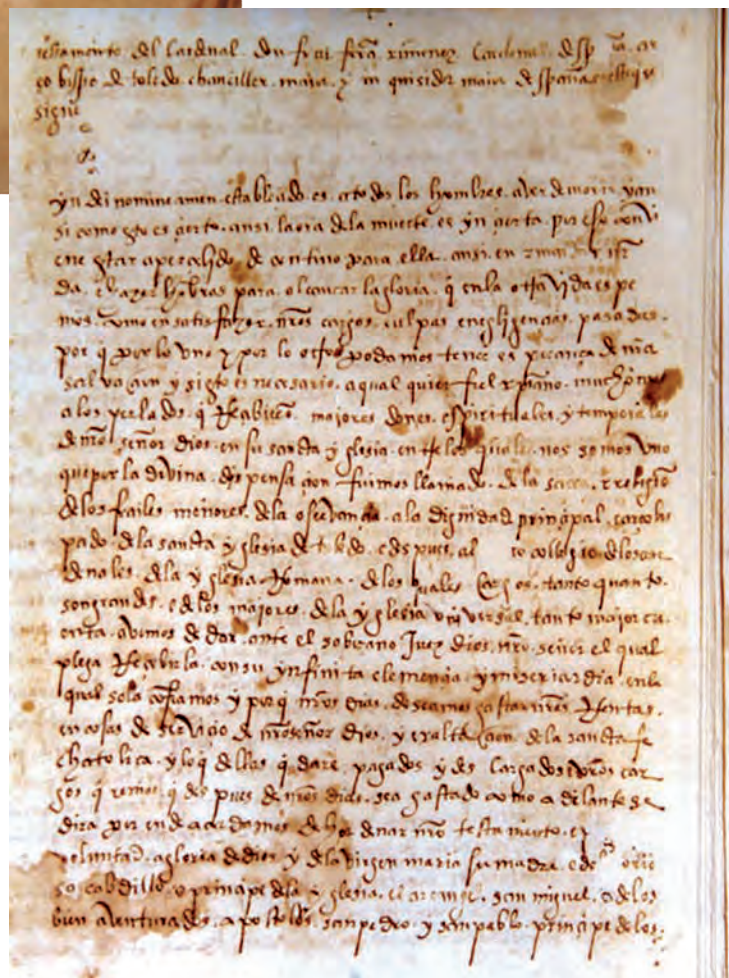 testamento del Cardenal don frai frã. ximenez Cardenal despaña. ar
çobispo de toledo chanciller. maior. y in quisidor maior de spaña
sigue
yn dei nomine amen. establecido es. a todos los hombres. aver de morir. y an
si como esto es çierto. ansi. la ora dela muerte es yn çierta. por eso convi
ene estar aperçebido. de contino para ella. ansi. en
da. e hazer hobras para. alcançar la gloria. q̃ en la otra vida espe
mos. como en satisfazer. nr̃os cargos. culpas e negligencias. pasadas.
por q̃ por lo vno y por lo otro podamos tener esperança de nr̃a
salvaçion y si esto es necesario. a qual quier fiel xp̃iano. mucho mas
a los perlados. q̃ Reçibierõ. maiores dones. espirituales. y temporales
de nr̃o señor dios. en su sancta yglesia. entre los quales. nos somos vno
que por la divina. dispensaçion fuimos llamado. de la religiõ
delos frailes menores. dela oservançia. a la dignidad prinçipal. arçobis
pado. dela sancta yglesia de toledo. e despues. al collegio. delos car
denales. dela yglesia Romana. delos quales Cargos. tanto quanto.
son grandes. e delos maiores. dela yglesia vniversal. tanto maior cu
enta. avemos de dar. ante el soberano Juez dios. nr̃o. señor el qual
plega Reçebirla. con su ynfinita clemençia. y misericordia. en la
qual sola cõfiamos y porq̃ nr̃os deseamos gastar nr̃as Rentas.
en cosas de serviçio de nr̃o señor dios. y exaltaçion. dela sancta fe
chatolica. y lo q̃ dellas q̃dare. pagados y des Cargados nr̃os car
gos q̃ remos. q̃ despues de nr̃os dias. sea gastado como a delante se
dira por ende acordamos. de hordenar nr̃o testamento. e
voluntad. a gloria de dios y dela virgen maria su madre. e del
so cabdillo. e prinçipe dela yglesia. el arcangel. san miguel. e delos
bien aventurados. apostoles. san pedro. y san pablo. prinçipe delos.